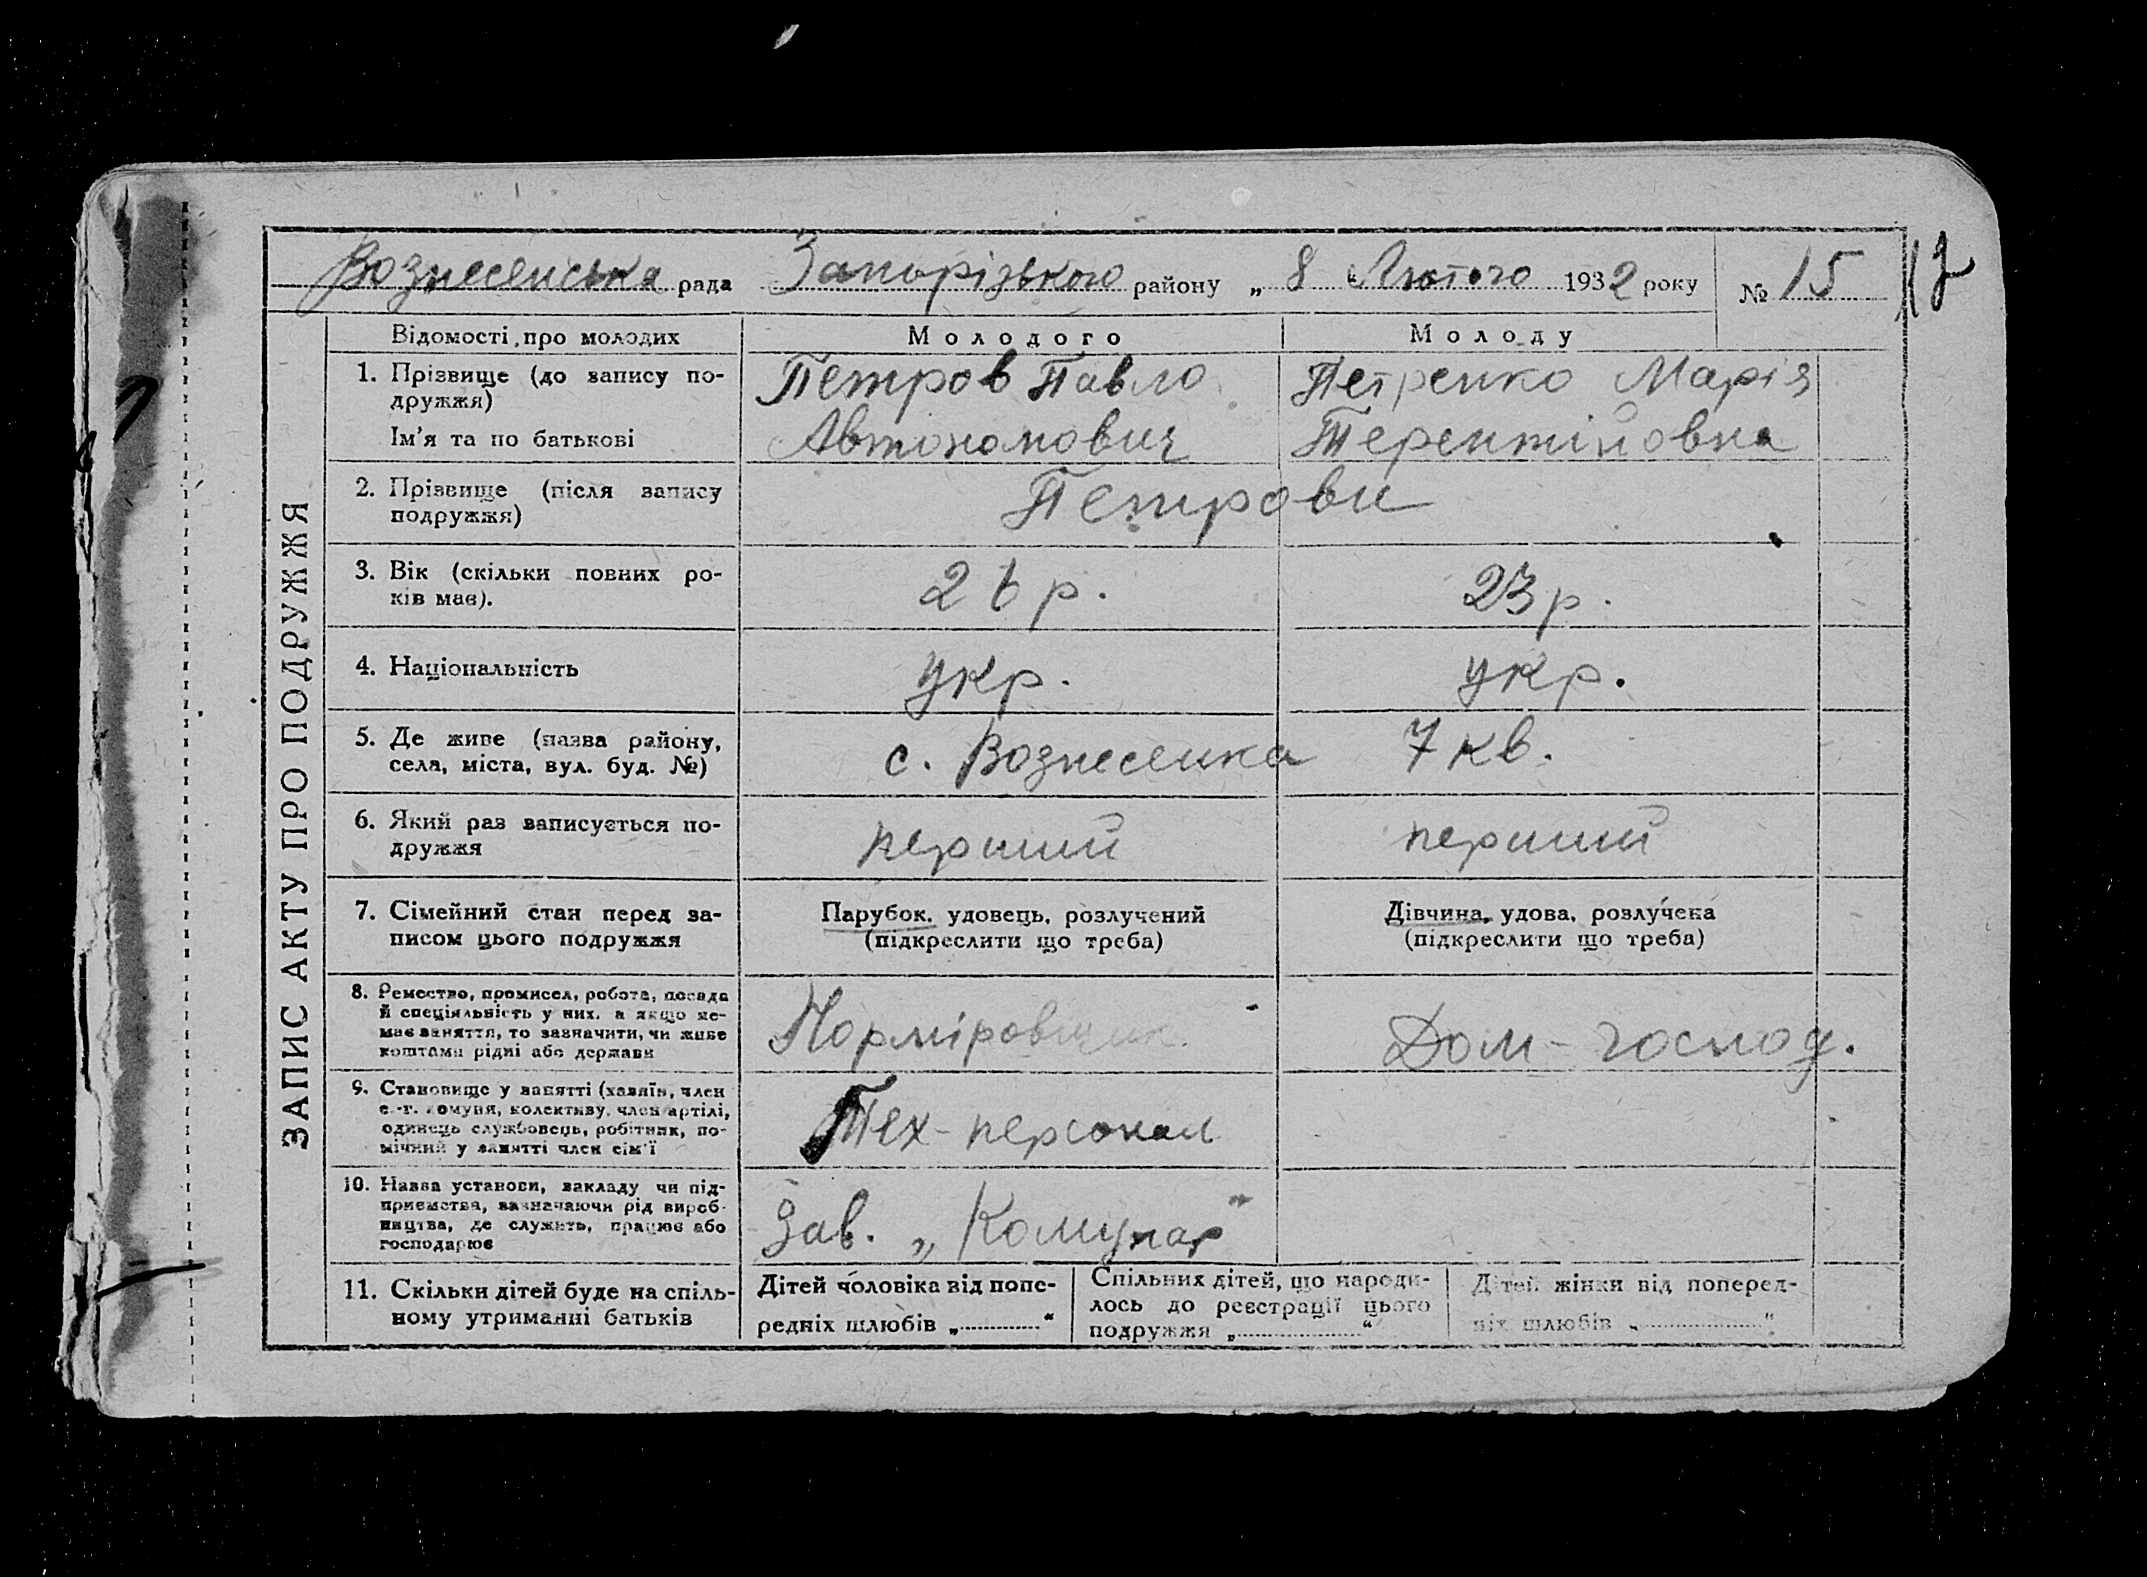 Вознесенська рада Запорізького району „ 8 “ Лютого 1932 року № 15
ЗАПИС АКТУ ПРО ПОДРУЖЖЯ
Відомості про молодих
Молодого
Молоду
1. Прізвище (до запису по-
дружжя)
Ім'я та по батькові
Петров Павло
Автономович
Петренко Марія
Терентійовна
2. Прізвище (після запису
подружжя)
Петрови
3. Вік (скільки повних ро-
ків має).
26 р.
23 р.
4. Національність
укр.
укр.
5. Де живе (назва району,
села, міста, вул. буд. №)
с. Вознесенка 7 кв.
6. Який раз записується по-
дружжя
перший
перший
7. Сімейний стан перед за-
писом цього подружжя
Парубок, удовець, розлучений
(підкреслити що треба)
Дівчина, удова, розлучена
(підкреслити що треба)
8. Ремество, промисел, робота, посада
й спеціяльність у них, а якщо не-
має заняття, то зазначити, чи живе
коштами рідні або держави
Норміровщик
Дом-господ.
9. Становище у занятті (хазяїн, член
с.-г. комуни, колективу, член артілі,
одинець службовець, робітник, по-
мічний у занятті член сім'ї
Тех-персонал
10. Назва установи, закладу чи під-
приємства, зазначаючи рід вироб-
ництва, де служить, працює або
господарює
Зав. „Комунар"
11. Скільки дітей буде на спіль-
ному утриманні батьків
Дітей чоловіка від попе-
редніх шлюбів „............“
Спільних дітей, що народи-
лось до реєстрації цього
подружжя „............“
Дітей жінки від поперед-
ніх шлюбів „............“